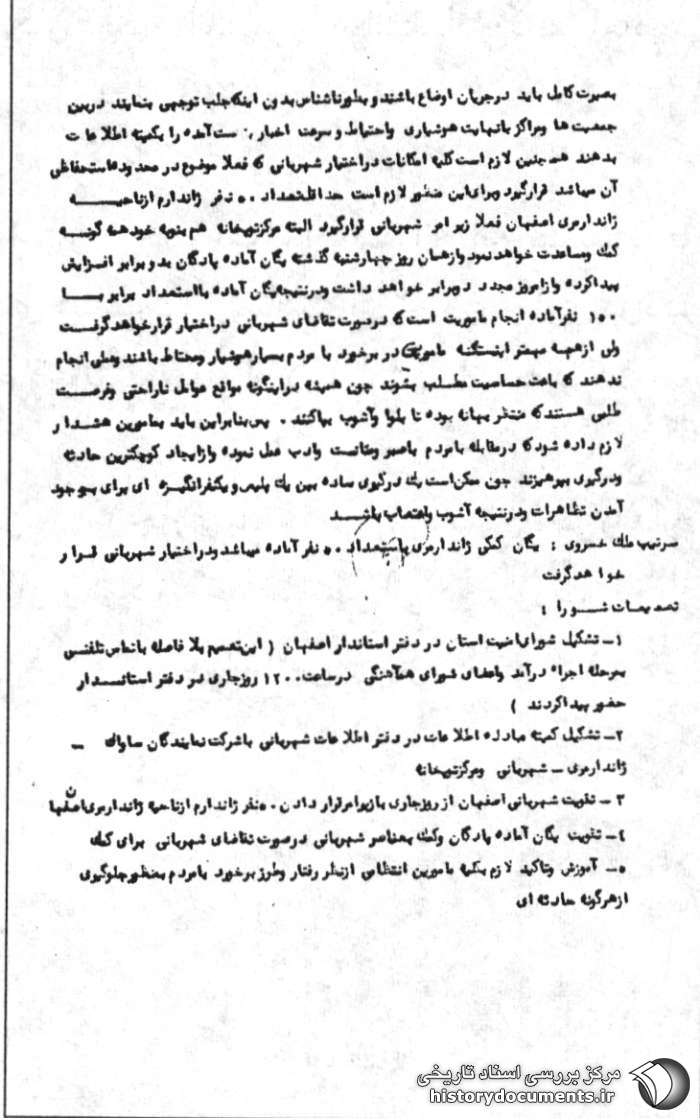 بصورت کامل باید در جریان اوضاع باشند و بطور ناشناس بدون اینکه جلب توجهی بنمایند دربین
جمعیت ها و مراکز با نهایت هوشیاری و احتیاط و سرعت اخبار بدست آمده را بکمیته اطلاعات
بدهند همچنین لازم است کلیه امکانات در اختیار شهربانی که فعلا موضوع در محدوده استحفاظی
آن میباشد قرار گیرد و برای این منظور لازم است حداقل تعداد ۵۰ نفر ژاندارم از ناحیه
ژاندارمری اصفهان فعلا زیر امر شهربانی قرار گیرد البته مرکز توپخانه هم بنوبه خود همه گونه
کمک و مساعدت خواهد نمود و از همان روز چهارشنبه گذشته یگان آماده پادگان به دو برابر افزایش
پیدا کرده و از امروز مجدد دو برابر خواهد داشت و در نتیجه یگان آماده با استعداد برابر با
نفر آماده انجام ماموریت است که در صورت تقاضای شهربانی در اختیار قرار خواهد گرفت
ولی از همه مهمتر اینستکه مامورین در برخورد با مردم بسیار هوشیار و محتاط باشند و عملی انجام
ندهند که باعث حساسیت مطلب بشوند چون همیشه در اینگونه مواقع عوامل ناراحتی و فرصت
طلبی هستند که منتظر بهانه بوده تا بلوا و آشوب بپاکنند . پس بنابراین باید بمامورین هشدار
لازم داده شود که در مقابله با مردم با صبر و متانت و ادب عمل نموده و از ایجاد کوچکترین حادثه
و درگیری بپرهیزند چون ممکن است یک درگیری ساده بین یک پلیس و یکنفر انگیزه ای برای بوجود
آمدن تظاهرات و در نتیجه آشوب و اعتصاب باشد
سرتیپ ملک خسروی : یگان کمکی ژاندارمری باستعداد ۵۰ نفر آماده میباشد و در اختیار شهربانی قرار
خواهد گرفت
تصمیمات شورا :
۱ـ تشکیل شورای امنیت استان در دفتر استاندار اصفهان ( این تصمیم بلا فاصله با تماس تلفنی
بمرحله اجراء درآمد و اعضای شورای هماهنگی در ساعت ۱۲۰۰ روز جاری در دفتر استاندار
حضور پیدا کردند )
۲ـ تشکیل کمیته مبادله اطلاعات در دفتر اطلاعات شهربانی با شرکت نمایندگان ساواک ـ
ژاندارمری ـ شهربانی و مرکز توپخانه
۳ ـ تقویت شهربانی اصفهان از روز جاری با زیر امر قرار دادن ۵۰ نفر ژاندارم از ناحیه ژاندارمری اصفهان
۴ـ تقویت یگان آماده پادگان و کمک بعناصر شهربانی در صورت تقاضای شهربانی برای کمک
۵ـ آموزش و تاکید لازم بکلیه مامورین انتظامی از نظر رفتار و طرز برخورد با مردم بمنظور جلوگیری
از هرگونه حادثه ای
مرکز بررسی اسناد تاریخی
historydocuments.ir